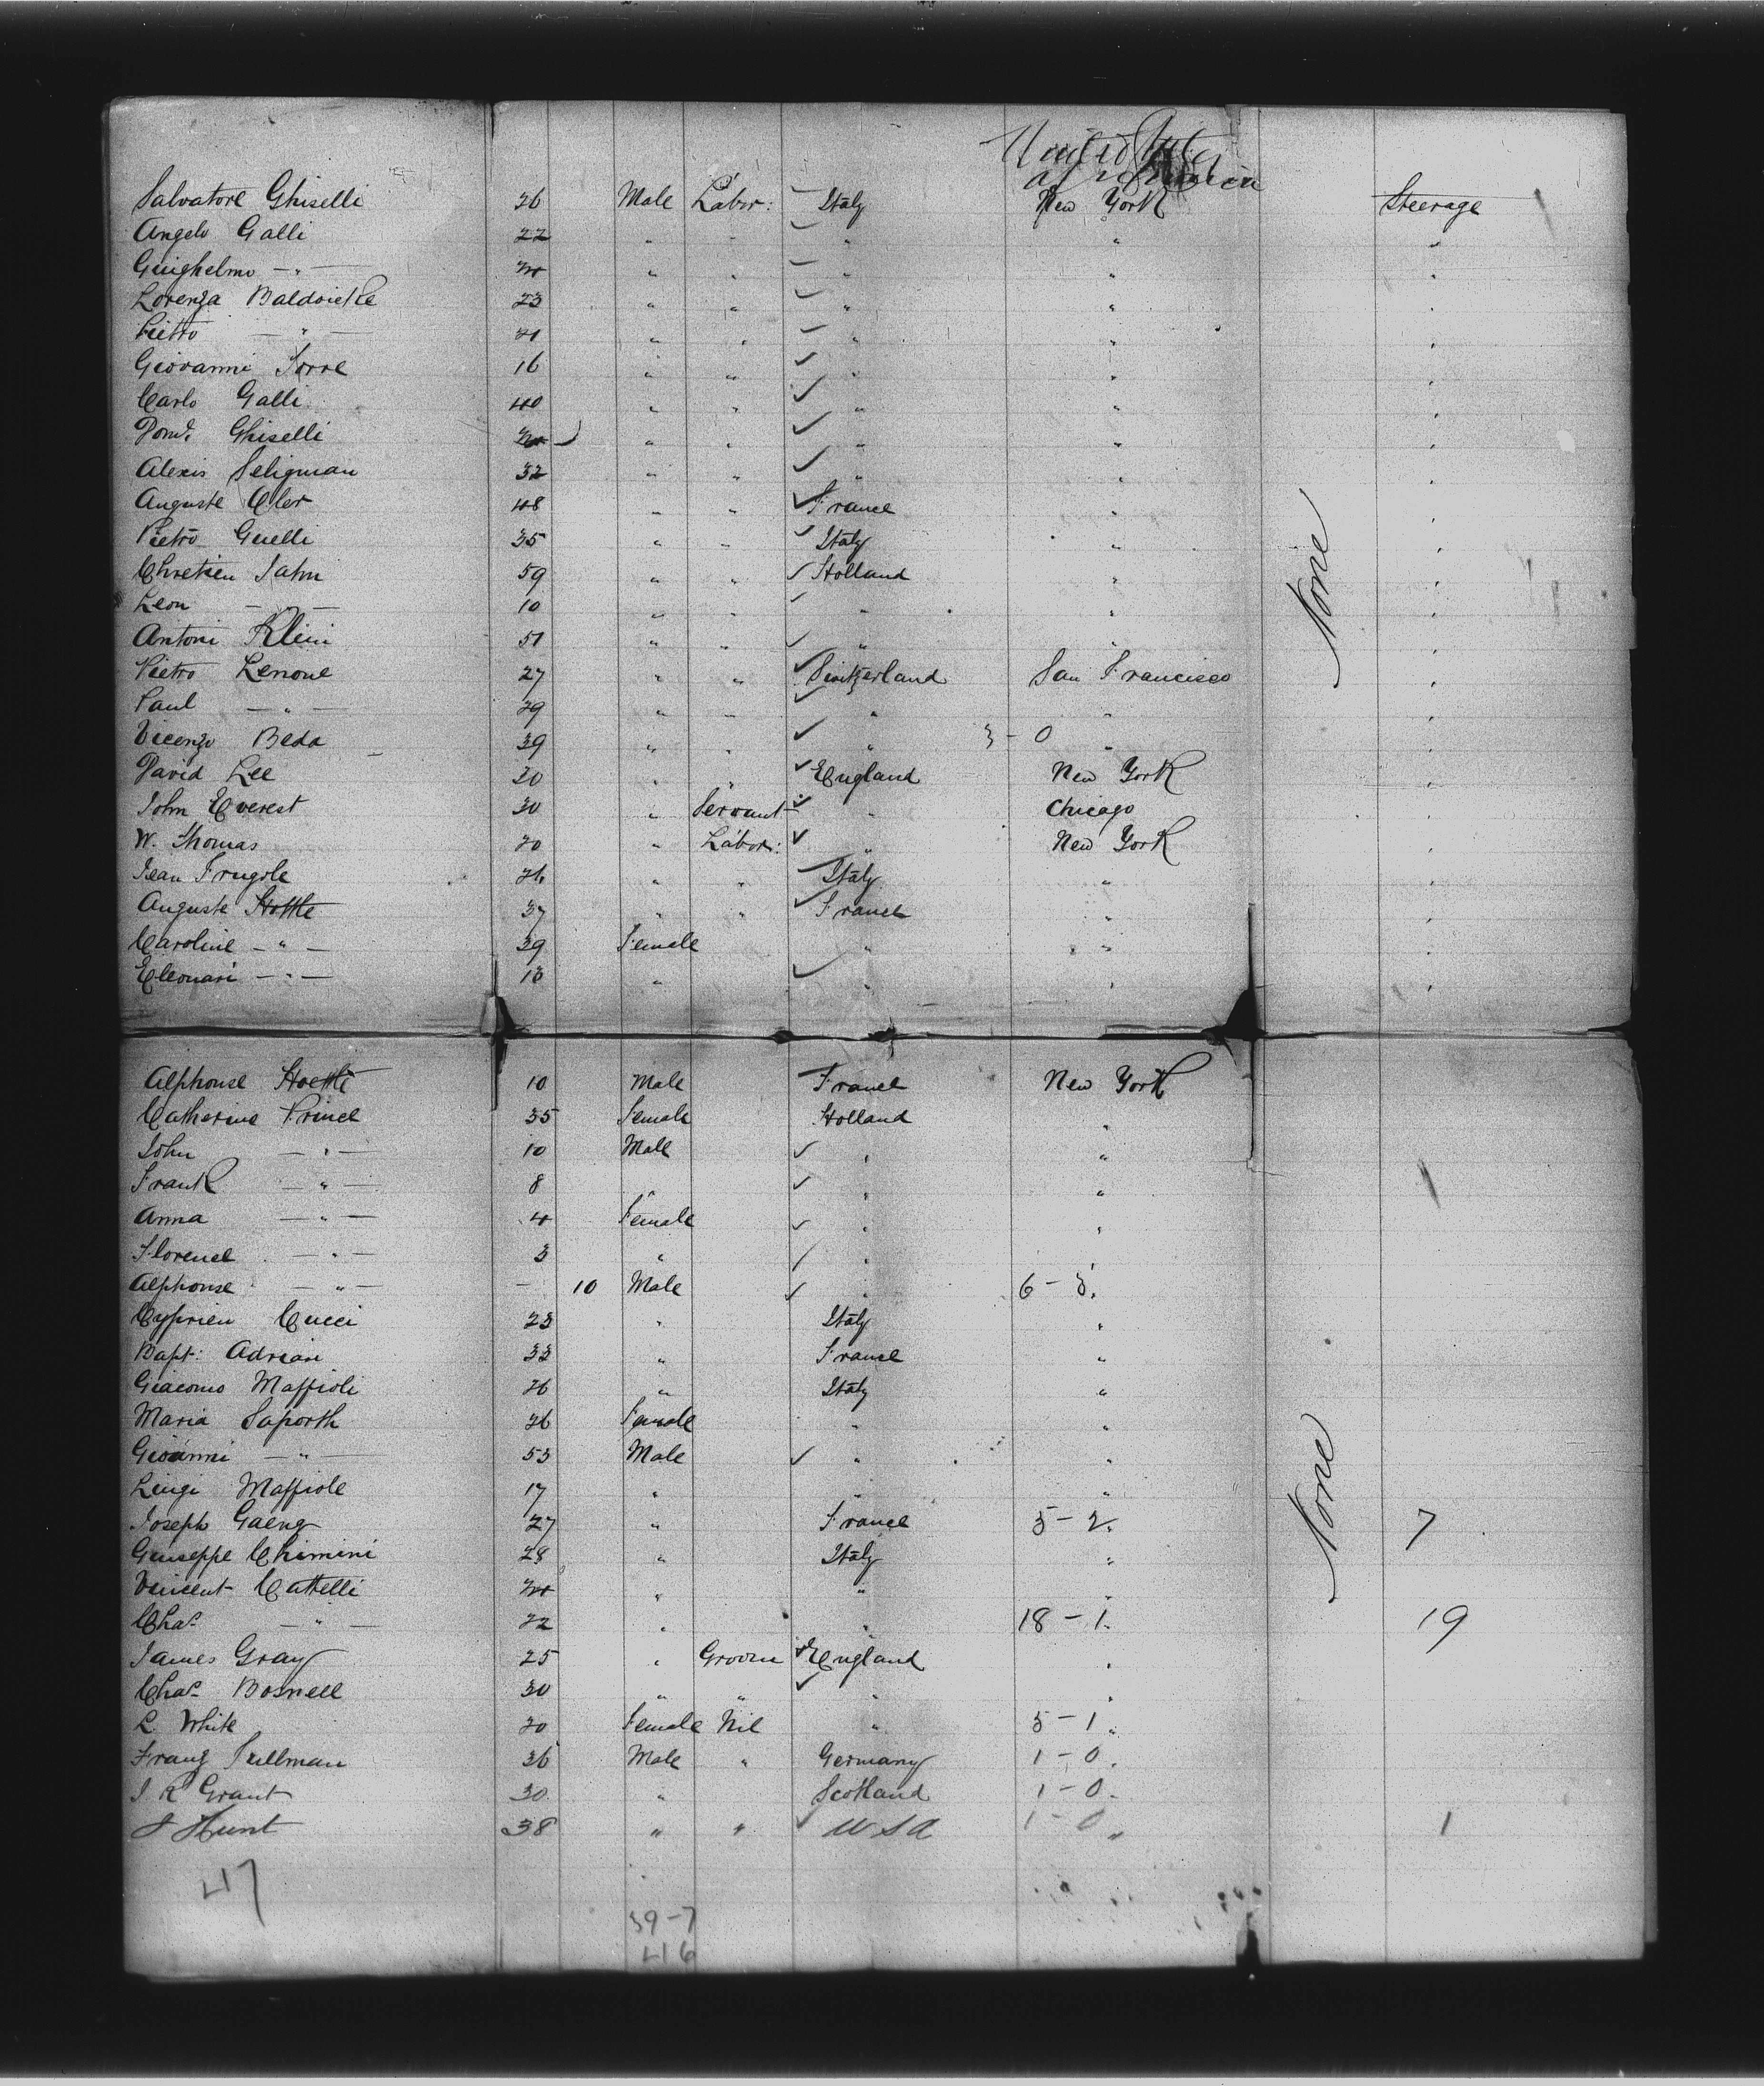 United States
of America
Salvatore Ghiselli 26 Male Labor: Italy New York Steerage
Angelo Galli 22 " " " " "
Guighelmo — " — " " " " "
Lorenza 23 " " " " "
Pietro — " — 21 " " " " "
Giovanni Torre 16 " " " " "
Carlo Galli 40 " " " " "
Domc. Ghiselli " " " " "
Alexis Seligman 32 " " " " "
Auguste Cler 48 " " France " "
Pietro Guelli 35 " " Italy " "
Chretien Jahn 59 " " Holland " "
Leon — " — 10 " " " " "
Antoni Klein 51 " " " " "
Pietro Lenone 27 " " Switzerland San Francisco "
Paul — " — 29 " " " " "
Vicenzo Beda 39 " " " 3 - 0 " "
David Lee 20 " " England New York "
John Everest 30 " Servant " Chicago "
W. Thomas 20 " Labor: " New York "
Jean Frugole 26 " " Italy " "
Auguste Hottle 37 " " France " "
Caroline — " — 39 Female " " "
Eleonari — " — 13 " " " "
None
Alphonse Hoettle 10 Male France New York
Catherine Prince 35 Female Holland "
John — " — 10 Male " "
Frank — " — 8 " " "
Anna — " — 4 Female " "
Florence — " — 3 " " "
Alphonse — " — — 10 Male " 6 - 3. "
Cyprien Cucci 23 " Italy "
Bapt: Adrian 33 " France "
Giacomo Maffioli 26 " Italy "
Maria Saporth 26 Female " "
Gioanni — " — 53 Male " "
Luigi Maffiole 17 " " "
Joseph Gaeng 27 " France 5 - 2. 7
Giuseppe Chimini 28 " Italy "
Vincent Cattelli " " "
Chas — " — 22 " " 18 - 1. 19
James Gray 25 " Groom England "
Chas Bosnell 30 " " " "
L. White 20 Female Nil " 5 - 1 "
Franz Pullman 36 Male " Germany 1 - 0.
J R Grant 30 " Scotland 1 - 0.
J Hunt 38 " " U S A 1 - 0 " 1
None
47
39 - 7
46